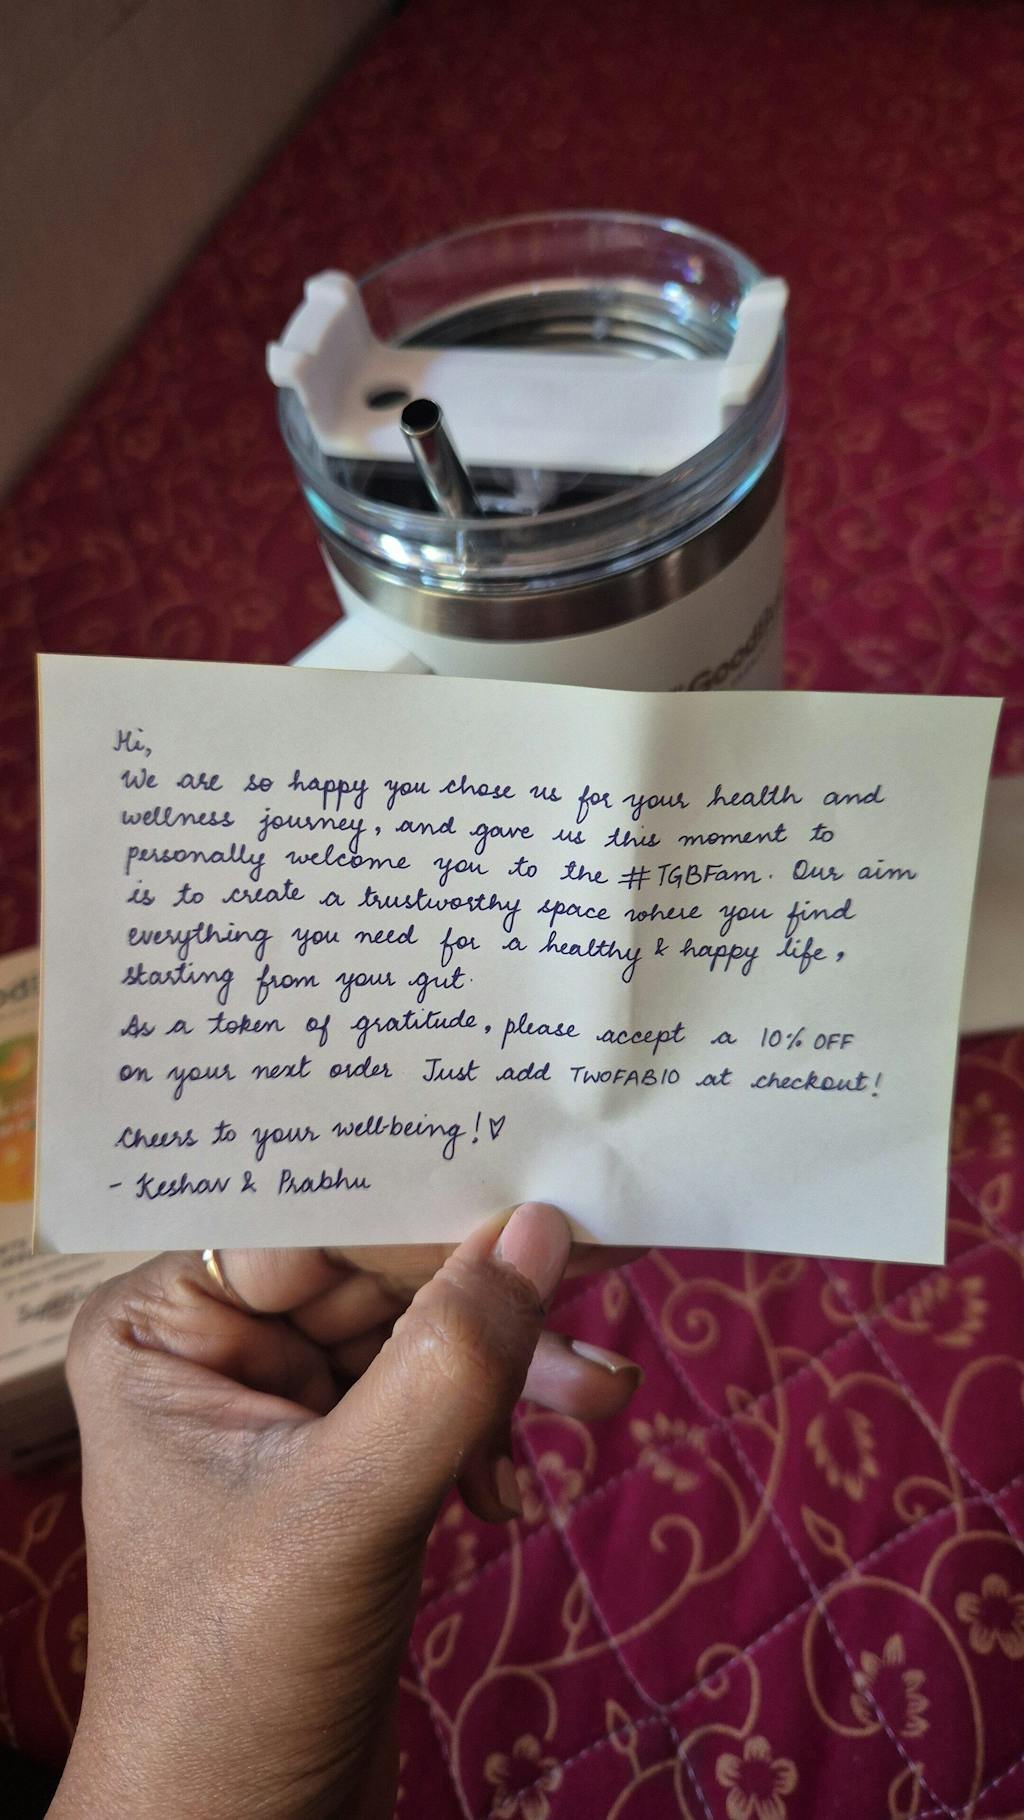 Hi,
We are so happy you chose us for your health and
wellness journey, and gave us this moment to
personally welcome you to the #TGBFam. Our aim
is to create a trustworthy space where you find
everything you need for a healthy & happy life,
starting from your gut.
As a token of gratitude, please accept a 10% OFF
on your next order Just add TWOFAB10 at checkout!
Cheers to your well-being! ♡
- Keshav & Prabhu